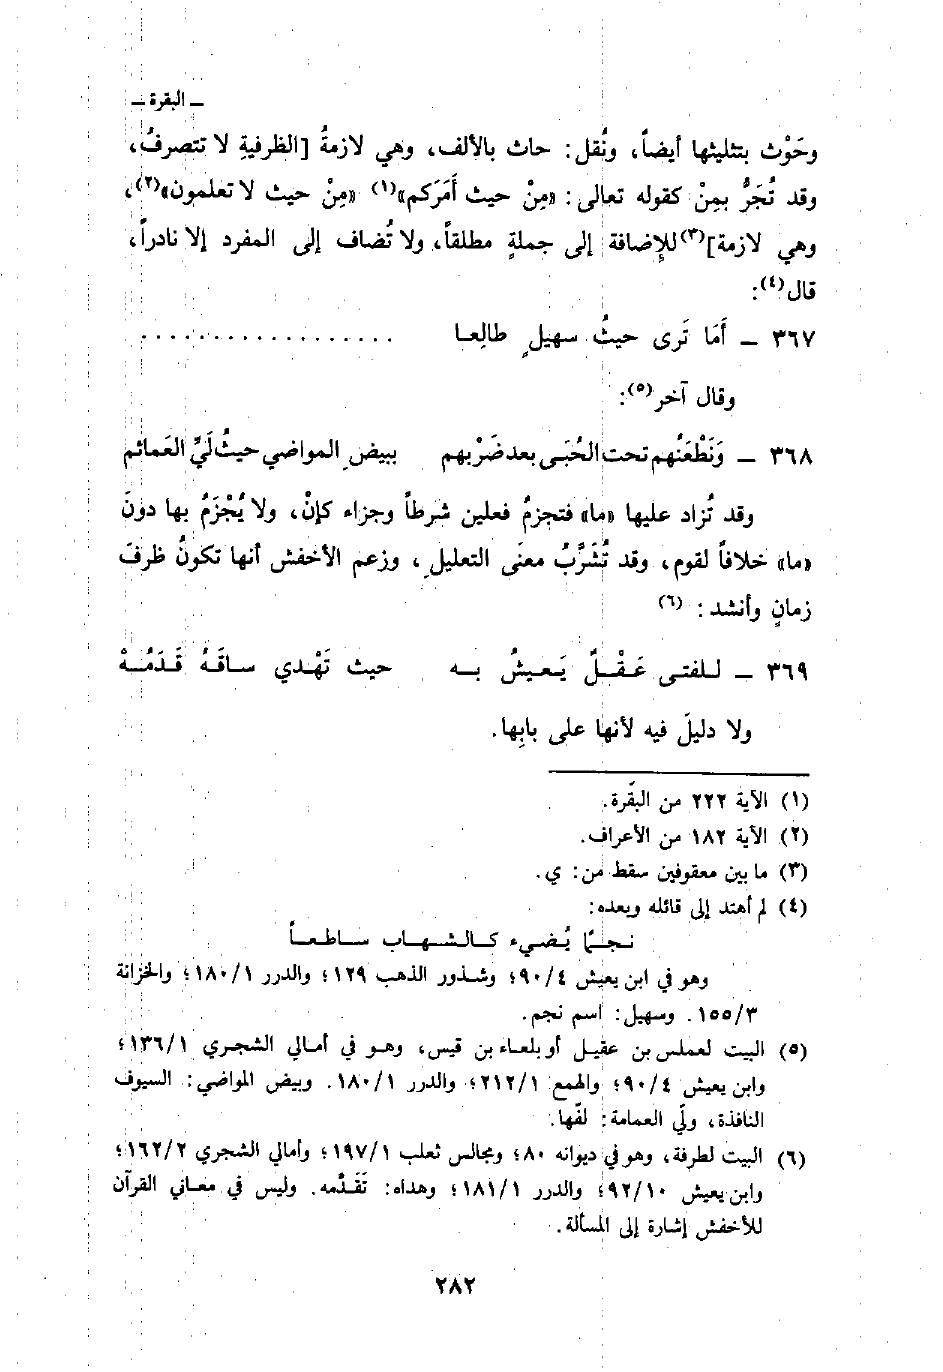 ـ البقرة ـ
وحَوْث بتثليثها أيضاً، ونُقل: حاث بالألف، وهي لازمةُ [الظرفيةِ لا تتصرفُ،
وقد تُجَرُّ بمِنْ كقوله تعالى: «مِنْ حيث أَمَرَكم»(١) «مِنْ حيث لا تعلمون»(٢)،
وهي لازمة](٣) للإِضافة إلى جملةٍ مطلقاً، ولا تُضاف إلى المفرد إلا نادراً،
قال(٤):
٣٦٧ ـ أَمَا تَرى حيثُ سهيلٍ طالِعا ..................
وقال آخر(٥):
٣٦٨ ـ وَنَطْعَنُهم تحت الحُبَى بعد ضَرْبهم ببيضِ المواضي حيثُ لَيِّ العَمائم
وقد تُزاد عليها «ما» فتجزمُ فعلين شرطاً وجزاء كإنْ، ولا يُجْزَمُ بها دونَ
«ما» خلافاً لقوم، وقد تُشَرَّبُ معنى التعليلِ، وزعم الأخفش أنها تكونُ ظرفَ
زمانٍ وأنشد: (٦)
٣٦٩ ـ للفتى عَقْلٌ يَعيشُ به حيث تَهْدي ساقَهُ قَدَمُهْ
ولا دليلَ فيه لأنها على بابِها.
(١) الآية ٢٢٢ من البقرة.
(٢) الآية ١٨٢ من الأعراف.
(٣) ما بين معقوفين سقط من: ي.
(٤) لم أهتد إلى قائله وبعده:
نجمًا يُضيء كالشهاب ساطعاً
وهو في ابن يعيش ٩٠/٤؛ وشذور الذهب ١٢٩؛ والدرر ١٨٠/١؛ والخزانة
١٥٥/٣. وسهيل: اسم نجم.
(٥) البيت لعملس بن عقيل أو بلعاء بن قيس، وهو في أمالي الشجري ١٣٦/١؛
وابن يعيش ٩٠/٤؛ والهمع ٢١٢/١؛ والدرر ١٨٠/١. وبيض المواضي: السيوف
النافذة، ولّي العمامة: لفّها.
(٦) البيت لطرفة، وهو في ديوانه ٨٠؛ ومجالس ثعلب ١٩٧/١؛ وأمالي الشجري ١٦٢/٢؛
وابن يعيش ٩٢/١٠؛ والدرر ١٨١/١؛ وهداه: تَقَدَّمه. وليس في معاني القرآن
للأخفش إشارة إلى المسألة.
٢٨٢